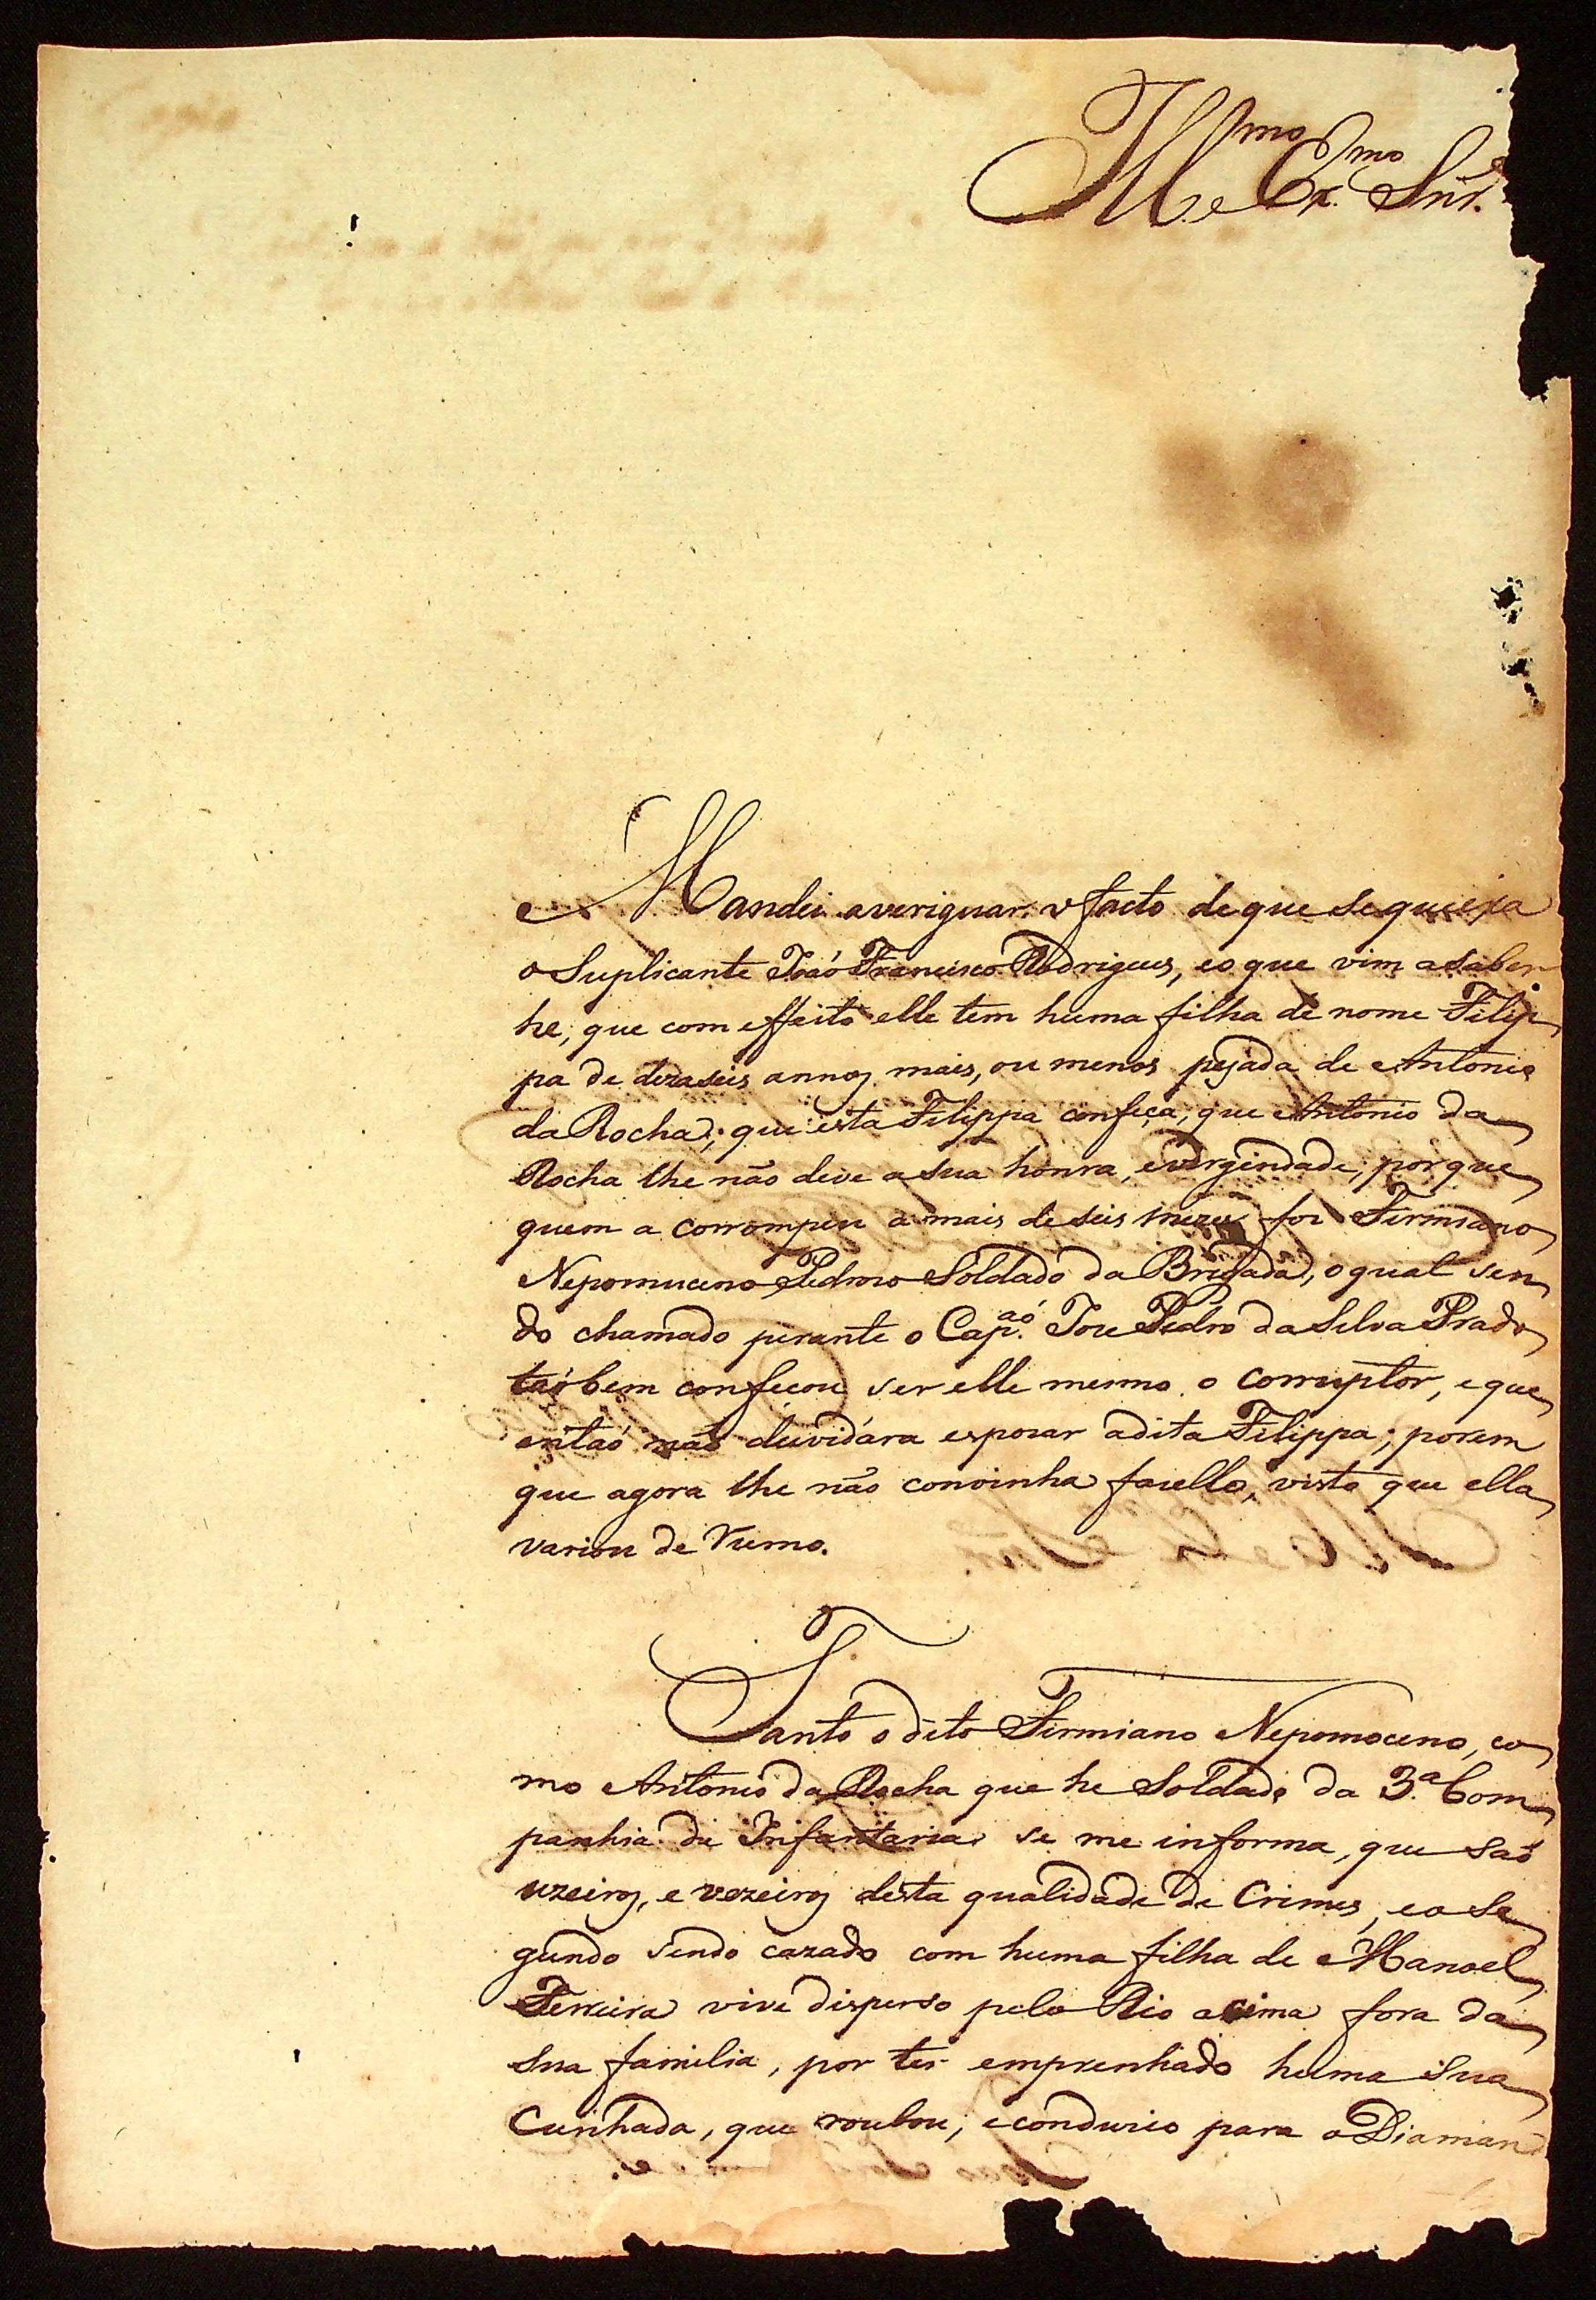 Ill.mo e Ex.mo Snr.
Mandei averiguar o facto de que se queixa
o Suplicante João Francisco Rodrigues, e o que vim a saber
he, que com effeito elle tem huma filha de nome Filip
pa de dezaseis annos mais, ou menos pejada de Antonio
da Rocha; que esta Filippa confeça, que Antonio da
Rocha lhe não deve a sua honra, e virgindade, porque
quem a corrompeu a mais de seis mezes foi Firmiano
Nepomuceno Pedroso Soldado da Brigada, o qual sen
do chamado perante o Cap.aõ Joze Pedro da Silva Prado
taõbem confeçou ser elle mesmo o corruptor, e que
entaõ não duvidára espozar a dita Filippa; porem
que agora lhe não convinha fazello, visto que ella
variou de rumo.
Tanto o dito Firmiano Nepomoceno, co
mo Antonio da Rocha que he Soldado da 3.a Com
panhia de Infantaria se me informa, que saõ
uzeiros, e vezeiros desta qualidade de Crimes, e o Se
gundo sendo cazado com huma filha de Manoel
Ferreira vive disperso pelo Rio acima fora da
sua familia, por ter emprenhado huma sua
Cunhada, que roubou, e conduzio para o Diaman